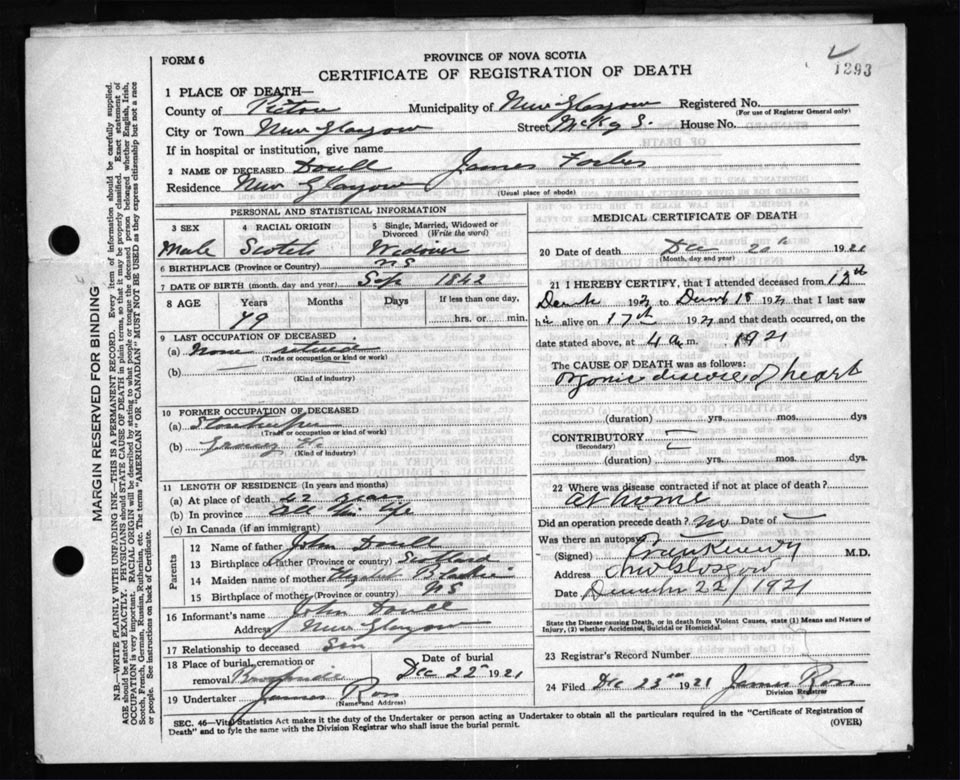 FORM 6
PROVINCE OF NOVA SCOTIA
CERTIFICATE OF REGISTRATION OF DEATH
1293
1 PLACE OF DEATH—
County of Pictou Municipality of New Glasgow Registered No.
(For use of Registrar General only)
City or Town New Glasgow Street McKay S. House No.
If in hospital or institution, give name
2 NAME OF DECEASED Doull James Forbes
Residence New Glasgow
(Usual place of abode)
PERSONAL AND STATISTICAL INFORMATION
3 SEX 4 RACIAL ORIGIN 5 Single, Married, Widowed or Divorced (Write the word)
Male Scotch Widower
6 BIRTHPLACE (Province or Country) NS
7 DATE OF BIRTH (month, day and year) Sep 1842
8 AGE Years Months Days If less than one day,
79 hrs. or min.
9 LAST OCCUPATION OF DECEASED
(a) None retired
(Trade or occupation or kind of work)
(b)
(Kind of industry)
10 FORMER OCCUPATION OF DECEASED
(a) Storekeeper
(Trade or occupation or kind of work)
(b)
(Kind of industry)
11 LENGTH OF RESIDENCE (In years and months)
(a) At place of death 42 years
(b) In province All his life
(c) In Canada (if an immigrant)
Parents
12 Name of father John Doull
13 Birthplace of father (Province or country) Scotland
14 Maiden name of mother Blackie
15 Birthplace of mother (Province or country) NS
16 Informant's name John Doull
Address New Glasgow
17 Relationship to deceased Son
18 Place of burial, cremation or removal Brookside Date of burial Dec 22 1921
19 Undertaker James Ross
(Name and Address)
MEDICAL CERTIFICATE OF DEATH
20 Date of death Dec 20th 1921
(Month, day and year)
21 I HEREBY CERTIFY, that I attended deceased from 13th
1921 to 18 1921 that I last saw
him alive on 17th 1921 and that death occurred, on
the date stated above, at 4 a.m. 1921
The CAUSE OF DEATH was as follows:
Organic disease of heart
(duration) yrs. mos. dys
CONTRIBUTORY
(Secondary)
(duration) yrs. mos. dys
22 Where was disease contracted if not at place of death?
At home
Did an operation precede death? no Date of
Was there an autopsy?
(Signed) M.D.
Address New Glasgow
Date December 22, 1921
State the Disease causing Death, or in death from Violent Causes, state (1) Means and Nature of Injury, (2) whether Accidental, Suicidal or Homicidal.
23 Registrar's Record Number
24 Filed Dec 23rd 1921 James Ross
Division Registrar
SEC. 46—Vital Statistics Act makes it the duty of the Undertaker or person acting as Undertaker to obtain all the particulars required in the "Certificate of Registration of
Death" and to fyle the same with the Division Registrar who shall issue the burial permit.
(OVER)
MARGIN RESERVED FOR BINDING
N.B.—WRITE PLAINLY WITH UNFADING INK—THIS IS A PERMANENT RECORD. Every item of information should be carefully supplied.
AGE should be stated EXACTLY. PHYSICIANS should STATE CAUSE OF DEATH in plain terms, so that it may be properly classified. Exact statement of
OCCUPATION is very important. RACIAL ORIGIN will be described by stating to what people or tongue the deceased person belonged whether English, Irish,
Scotch, French, German, Russian, Ruthenian, etc. The terms "AMERICAN" or "CANADIAN" MUST NOT BE USED as they express citizenship but not a race
or people. See instructions on back of Certificate.